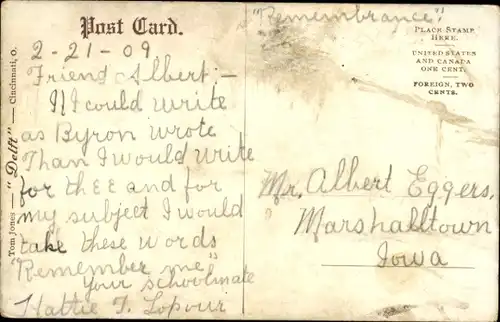 Post Card.
"Remembrance."
PLACE STAMP
HERE.
UNITED STATES
AND CANADA
ONE CENT.
FOREIGN, TWO
CENTS.
2-21-09
Friend Albert;-
If I could write
as Byron wrote
Than I would write
for thEE and for
my subject I would
take these words
"Remember me"
your schoolmate
Hattie F. Lopour
Mr. Albert Eggers,
Marshalltown
Iowa
Tom Jones — "Delft" — Cincinnati, O.